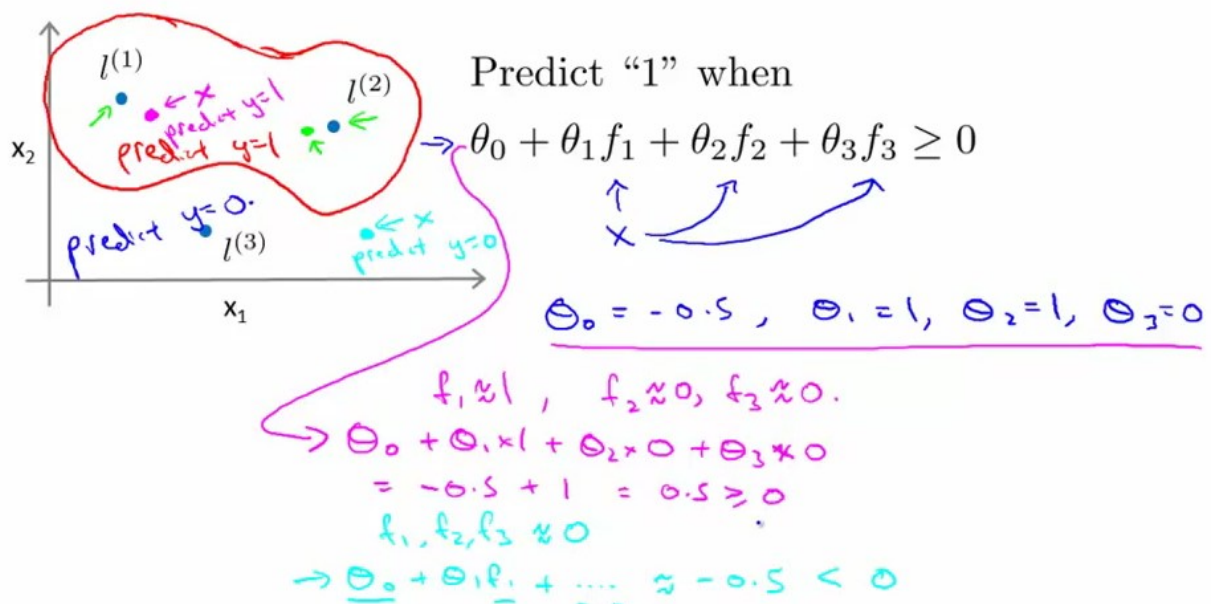 l^{(1)}
← x
predict y=1
l^{(2)}
predict y=1
x₂
predict y=0.
l^{(3)}
← x
predict y=0
x₁
Predict “1” when
→ θ₀ + θ₁f₁ + θ₂f₂ + θ₃f₃ ≥ 0
x
θ₀ = -0.5 , θ₁ = 1, θ₂ = 1, θ₃ = 0
f₁ ≈ 1 , f₂ ≈ 0, f₃ ≈ 0.
→ θ₀ + θ₁×1 + θ₂×0 + θ₃×0
= -0.5 + 1 = 0.5 ≥ 0
f₁, f₂, f₃ ≈ 0
→ θ₀ + θ₁f₁ + .... ≈ -0.5 < 0